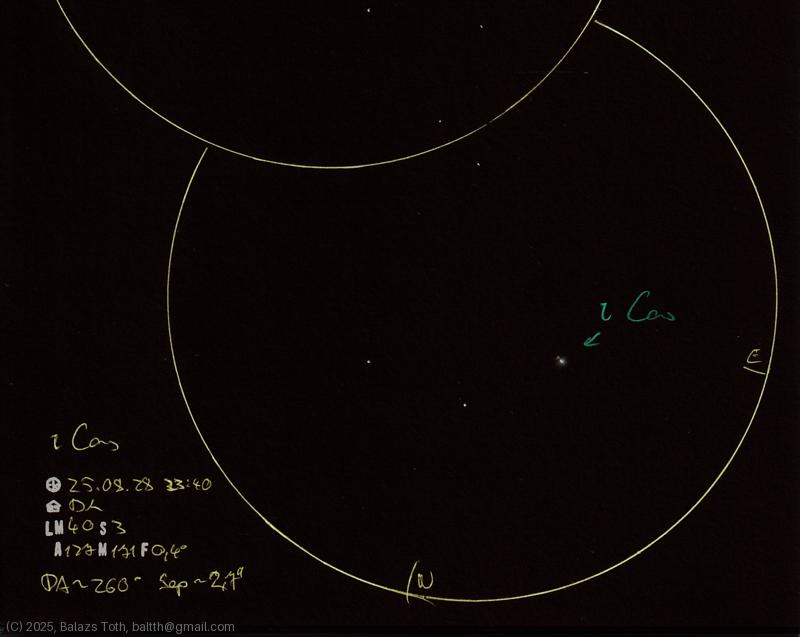 ι Cas
E
ι Cas
25.08.28 23:40
DL
LM 40 S 3
A 127 M 171 F 0,4°
PA ~ 260° Sep ~ 2,7"
N
(C) 2025, Balazs Toth, baltth@gmail.com